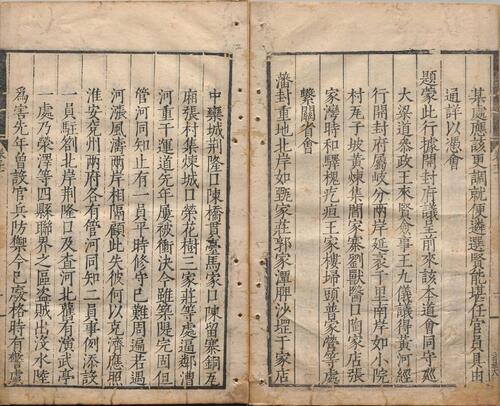 某處應該更調就便遴選賢能堪任官員具由
通詳以憑會
題蒙此行據開封府議呈前來該本道會同守廵
大梁道叅政王來賢僉事王九儀議得黃河經
行開封府屬岐分兩岸延袤千里南岸如小院
村五子坡黃煉集閻家寨劉獸醫口陶家店張
家灣時和驛槐疙疸王家樓埽頭普家營等處
繫關省會
藩封重地北岸如甄家莊郭家潭脾沙堽于家店
中欒城荆隆口陳橋貫臺馬家口陳留寨銅瓦
廂張村集煉城口榮花樹三家莊等處逼鄰漕
河重干運道先年屢被衝決今雖築隄完固但
管河同知止有一員平時修守已難周遍若遇
河漲風濤兩岸相隔顧此失彼何以克濟應照
淮安兖州兩府各有管河同知二員事例添設
一員駐劄北岸荆隆口及查河北舊有演武亭
一處乃滎澤等四縣聯界之區盜賊出沒水陸
爲害先年曾設官兵防禦今已廢格時有警虞